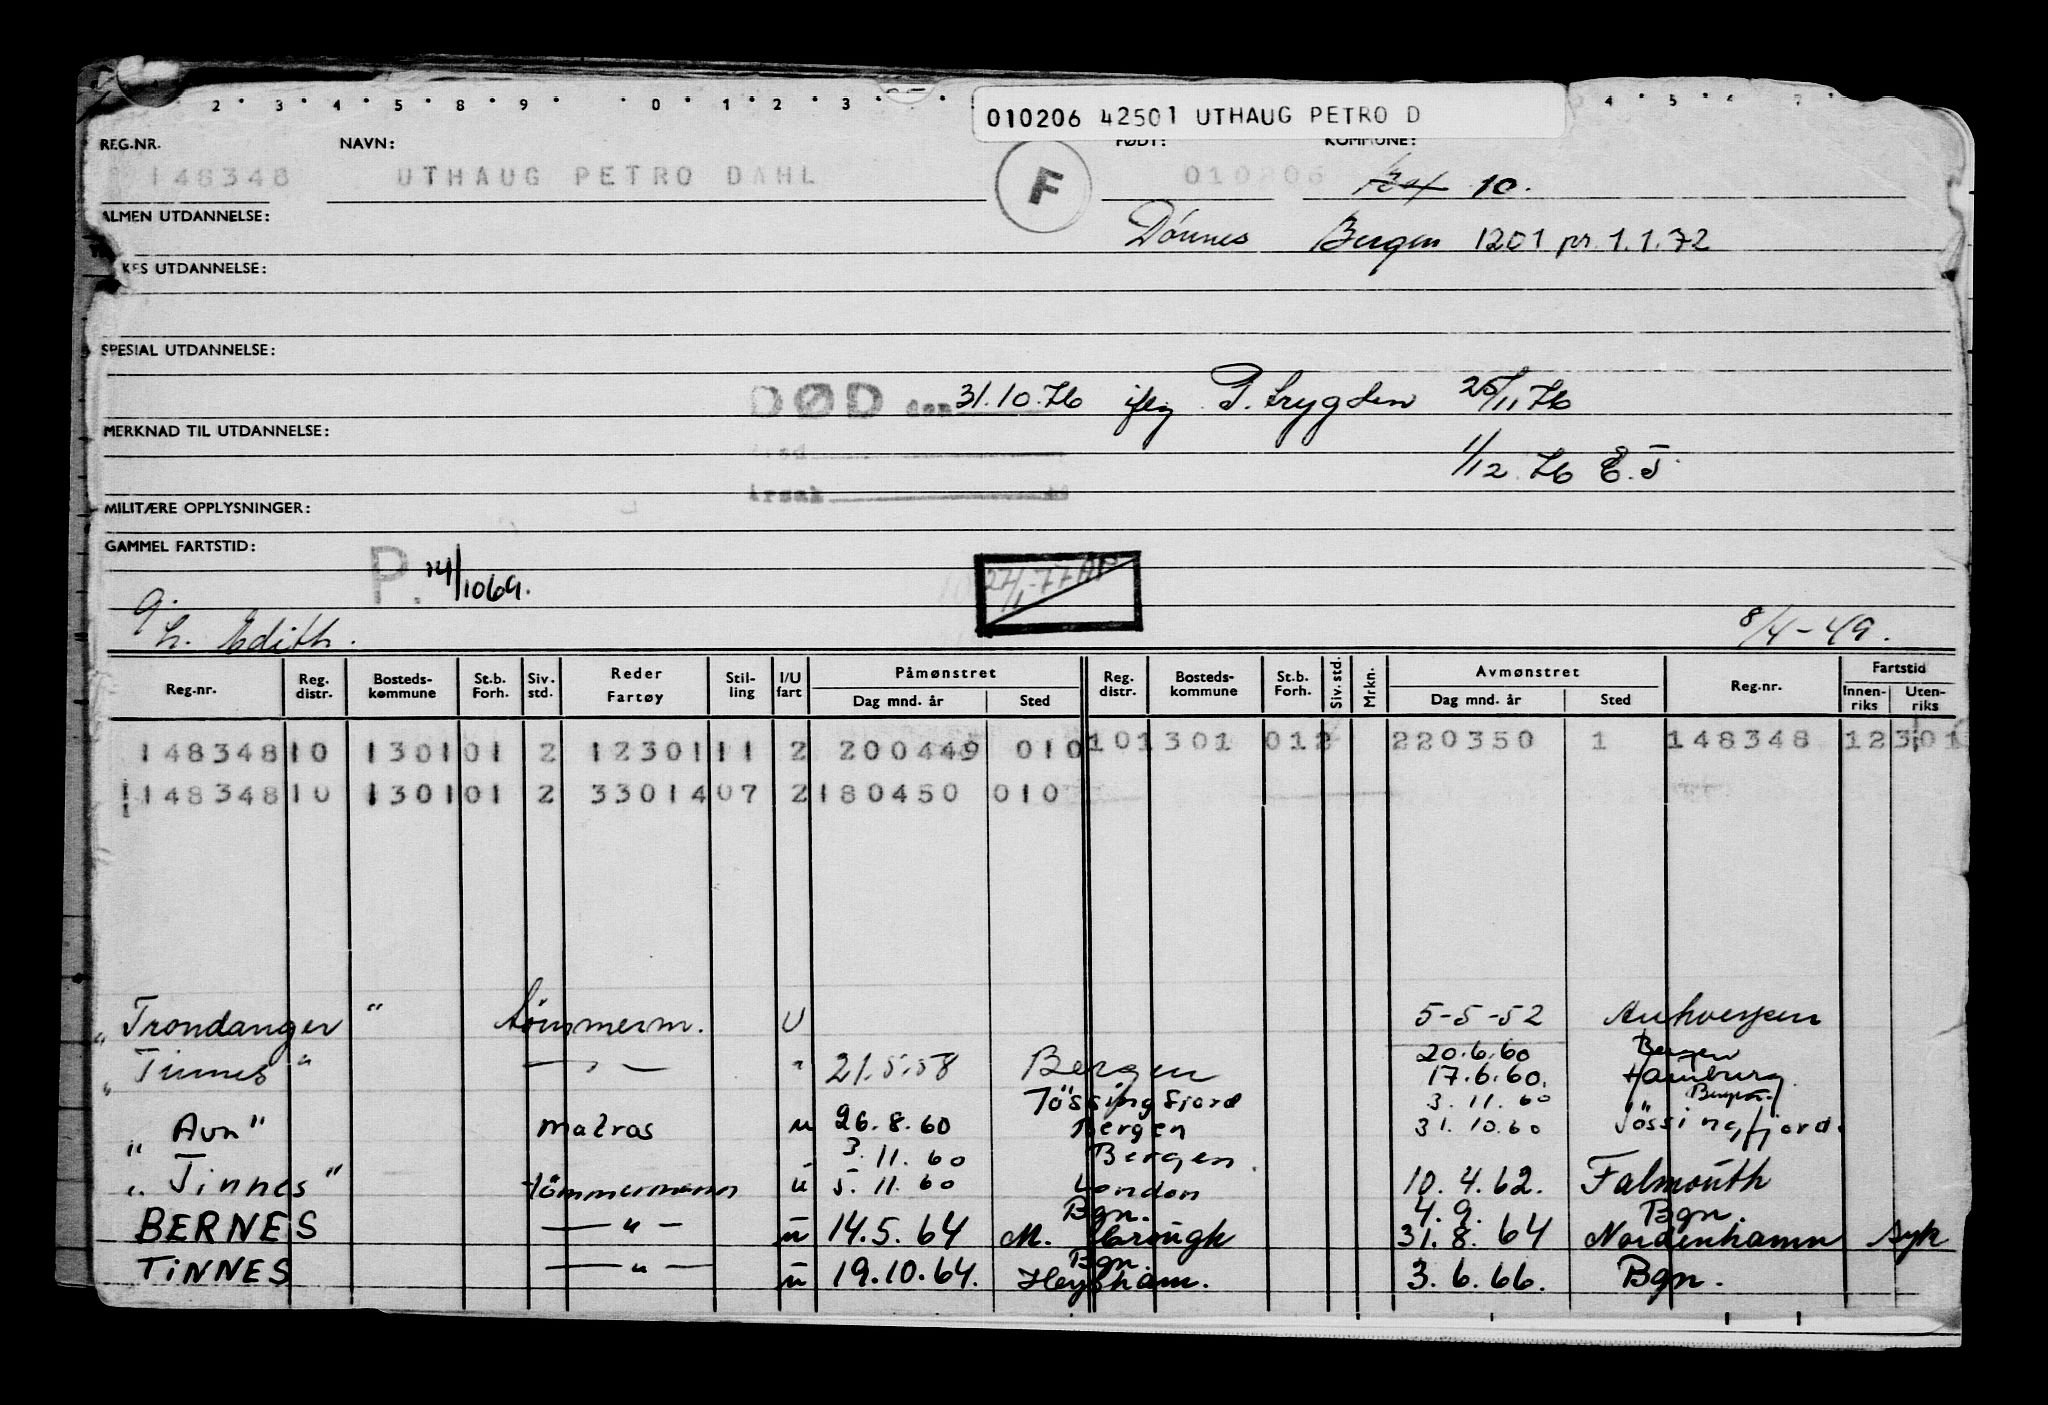 2 · 3 · 4 · 5 · 8 · 9 · · 0 · 1 · 2 · 3 · 4 · 5 · 6 7
010206 42501 UTHAUG PETRO D
REG.NR. NAVN: FØDT: KOMMUNE:
148348 UTHAUG PETRO DAHL F 010206 10.
ALMEN UTDANNELSE:
Dönnes Bergen 1201 pr. 1.1.72
KES UTDANNELSE:
SPESIAL UTDANNELSE:
DØD den 31.10.76 iflg P. trygden 25/11 76
MERKNAD TIL UTDANNELSE:
1/12 76 E.J.
Årsak
MILITÆRE OPPLYSNINGER:
GAMMEL FARTSTID:
P. 14/10 69.
27/1-77
g. h. Edith. 8/4-49.
Reg.-nr. Reg. distr. Bosteds-kommune St.b. Forh. Siv. std. Reder Fartøy Stil-ling I/U fart Påmønstret Dag mnd. år Sted Reg. distr. Bosteds-kommune St.b. Forh. Siv. std. Mrkn. Avmønstret Dag mnd. år Sted Reg.nr. Fartstid Innen-riks Uten-riks
148348 10 1301 01 2 12301 11 2 200449 010 10 1301 012 220350 1 148348 12301
148348 10 1301 01 2 33014 07 2 180450 010
" Trondanger " tömmerm. U 5-5-52 Antwerpen
" Tinnes " — " — " 21.5.58 Bergen 20.6.60 Bergen
17.6.60. Hamburg.
Jössingfjord 3.11.60 Bergen
" Avn " matros u 26.8.60 Bergen 31.10.60 Jössingfjord.
3.11.60 Bergen.
" Tinnes " tömmermann u 5.11.60 London 10.4.62. Falmouth
Bgn. 4.9. Bgn.
BERNES — " — u 14.5.64 M. brough 31.8.64 Nordenhamn syk
Bgn.
TINNES — " — u 19.10.64. Heysham. 3.6.66. Bgn.